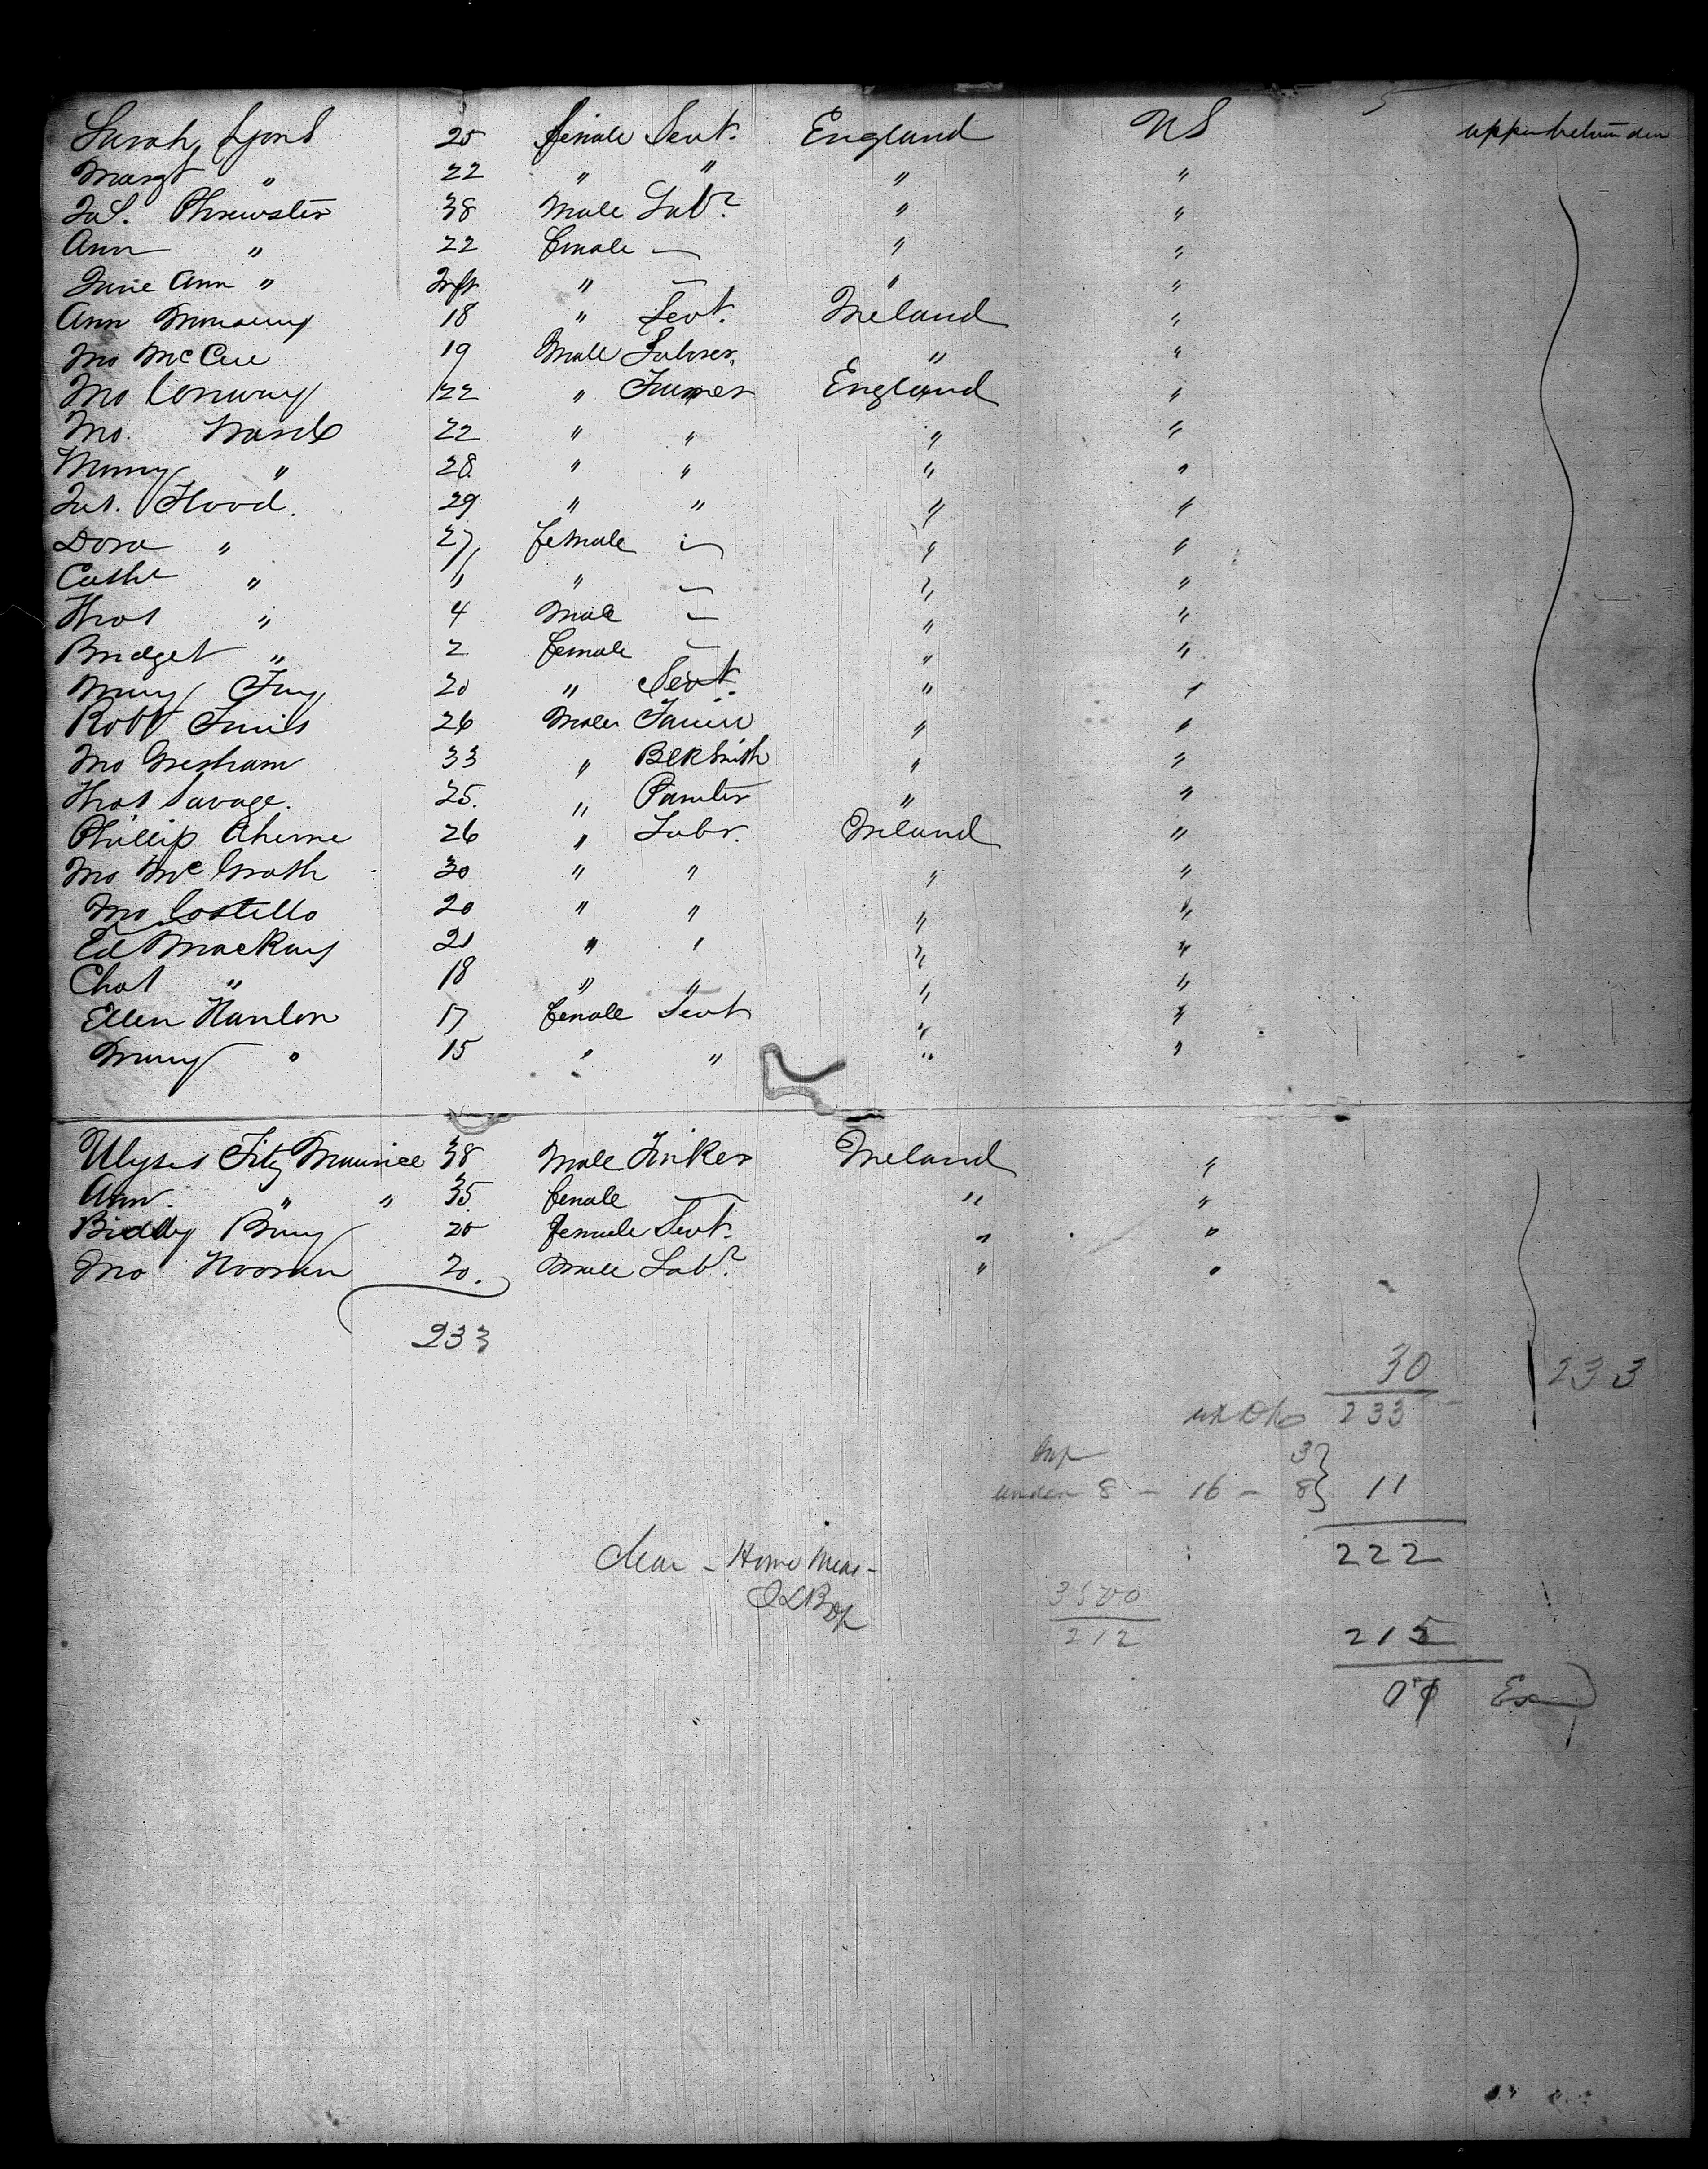 Sarah Lyons 20 female Sevt. England US upper between den
Margt " 22 " " " "
Jas. Phrewster 38 Male Labr " "
Ann " 22 female — " "
Jane Ann " Inft " — " "
Ann 18 " Sevt. Ireland "
Jno McCue 19 Male Laborer " "
Jno Conway 22 " Farmer England "
Jno. 22 " " " "
" 28 " " " "
Jas. Flood 29 " " " "
Dora " 27 female — " "
Cathe " 11 " — " "
Thos " 4 Male — " "
Bridget " 2 female — " "
Mary Fay 20 " Sevt. " "
Robt 26 Male " "
Jno Gresham 33 " BlkSmith " "
Thos Savage. 25. " Painter " "
Phillip Aherne 26 " Labr. Ireland "
Jno McGrath 30 " " " "
Jno Costello 20 " " " "
Ed Mackay 21 " " " "
Chas " 18 " " " "
Ellen Hanlon 17 female Sevt " "
Mary " 15 " " " "
Ulyses Fitz Maurice 38 Male Tinker Ireland "
Ann. " " 35. female — " "
Biddy 20 female Sevt. " "
Jno Noonan 20. Male Labr " "
233
30 233
233
Inf 3
under 8 - 16 - 8 } 11
222
Clear - Home Meas -
3500
212
215
07 Ex